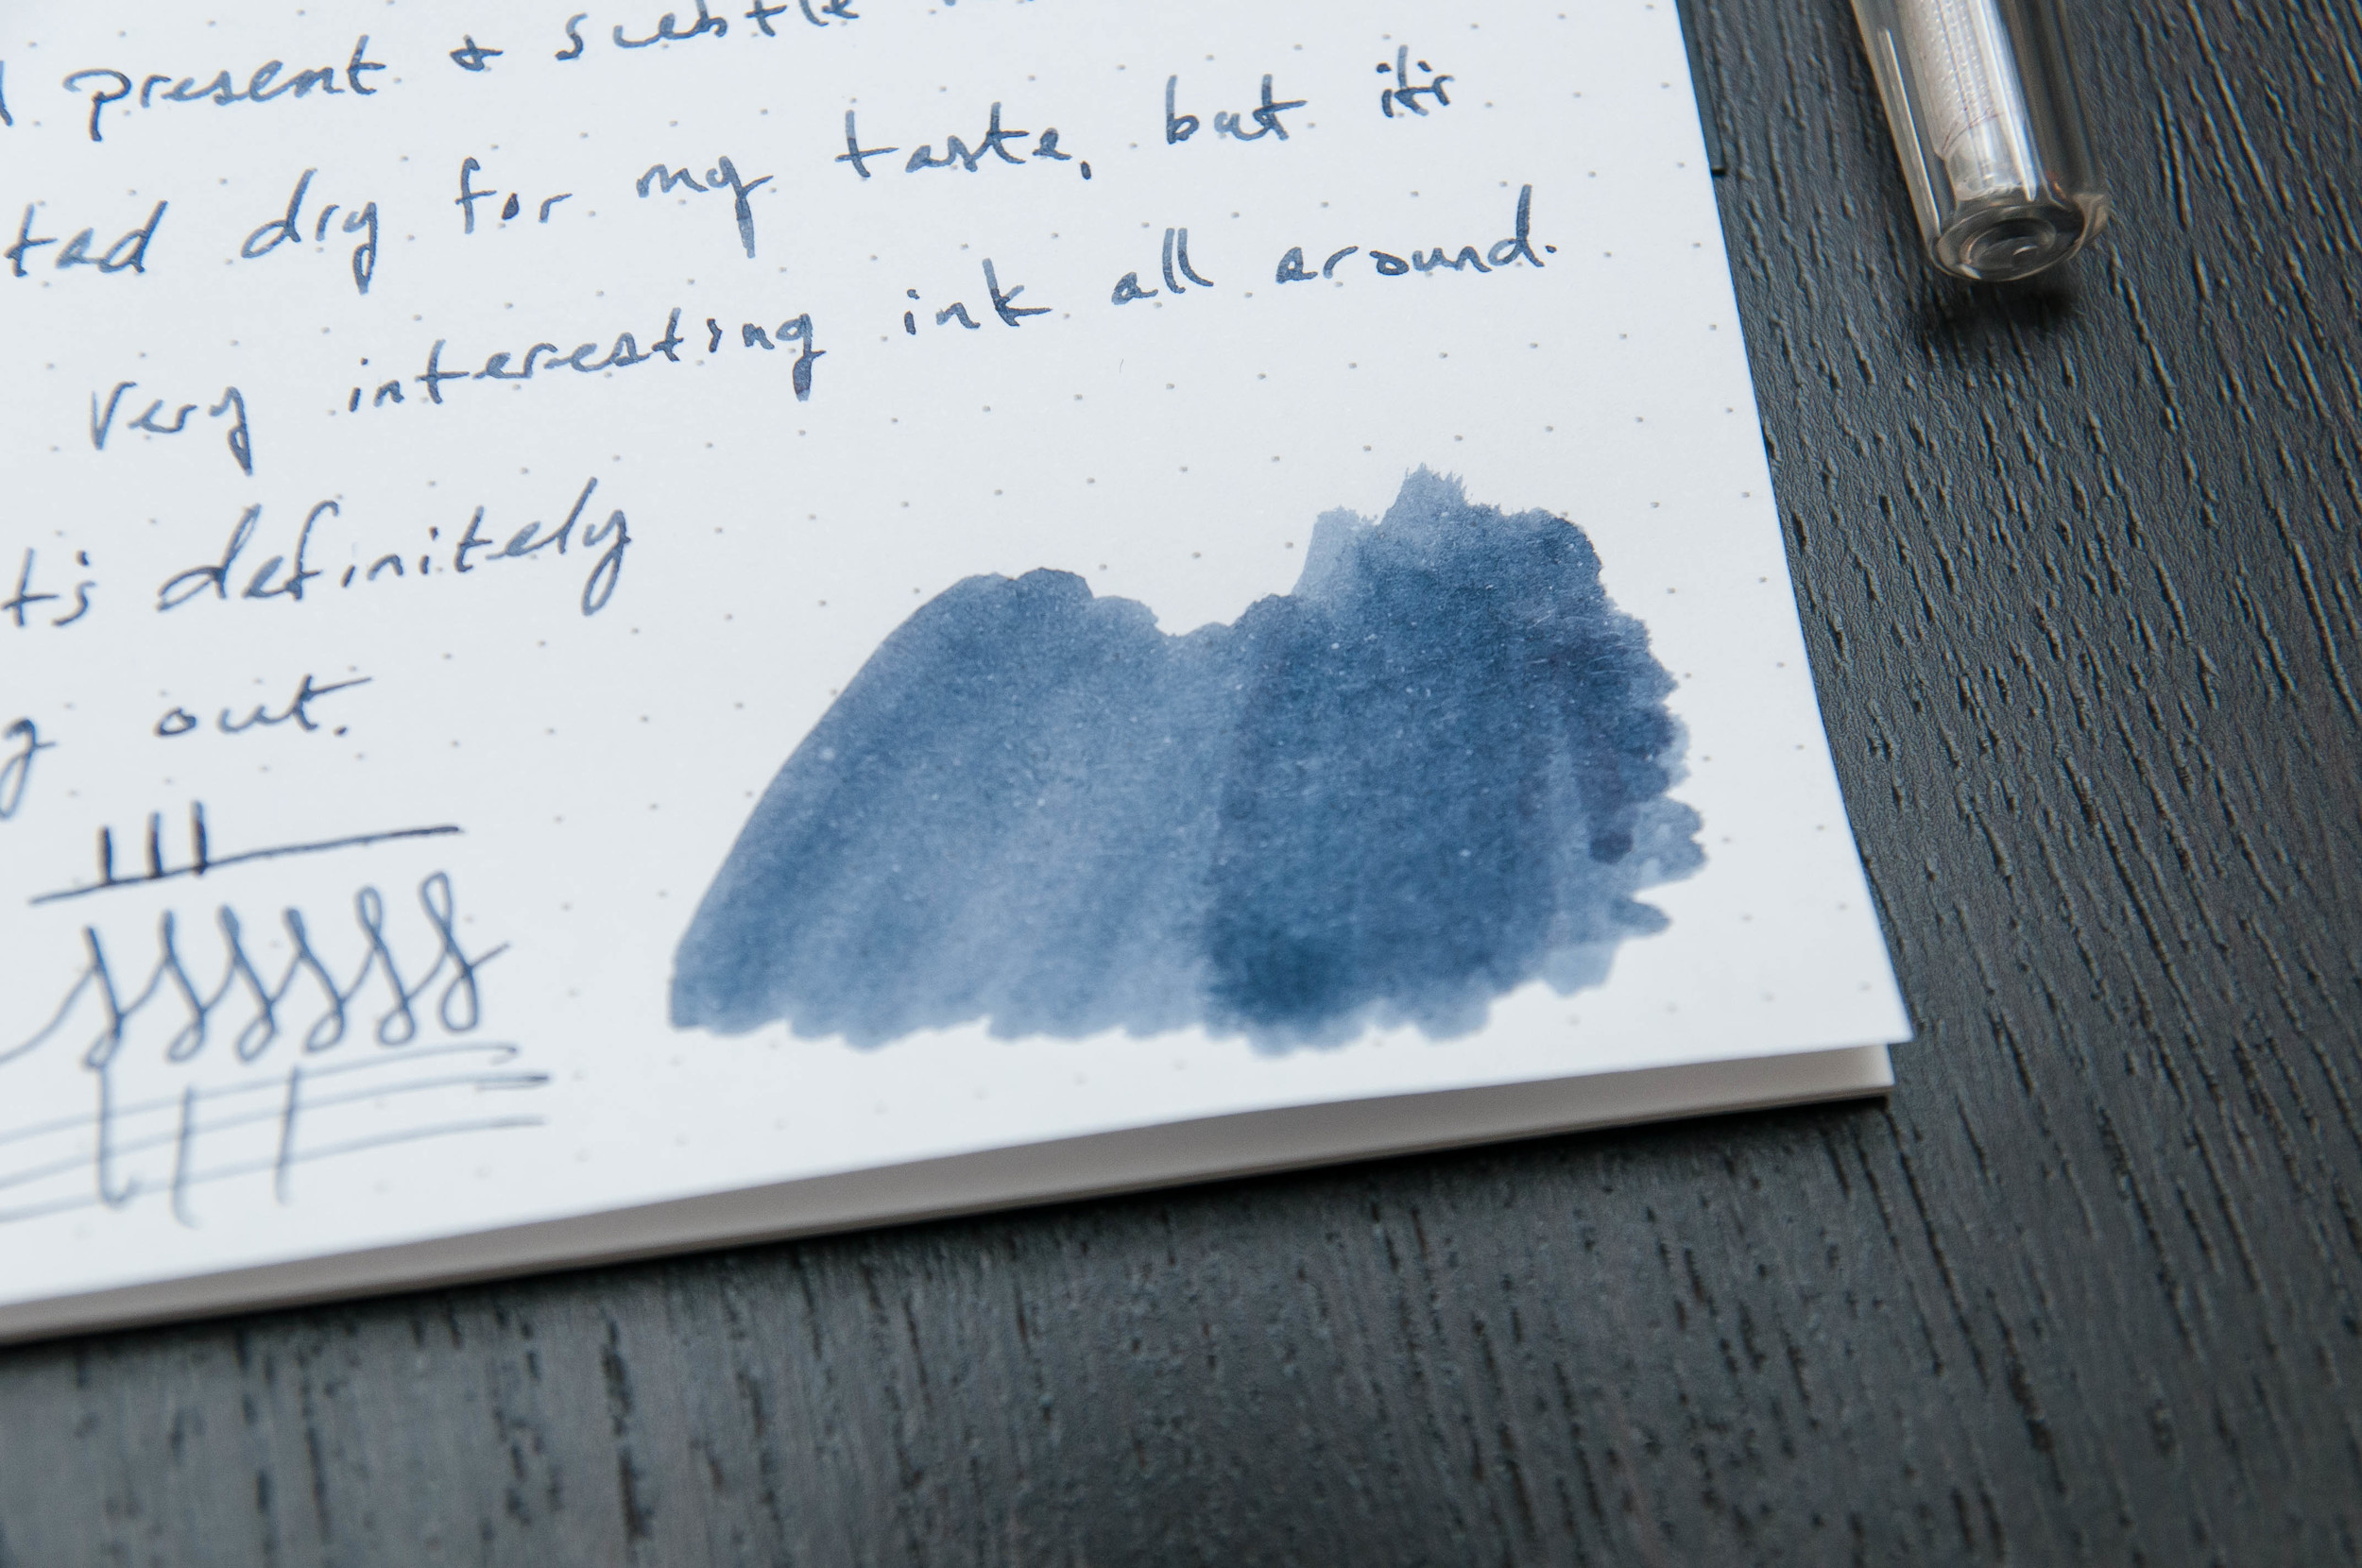 present & subtle
tad dry for my taste, but it's
very interesting ink all around.
definitely
out.